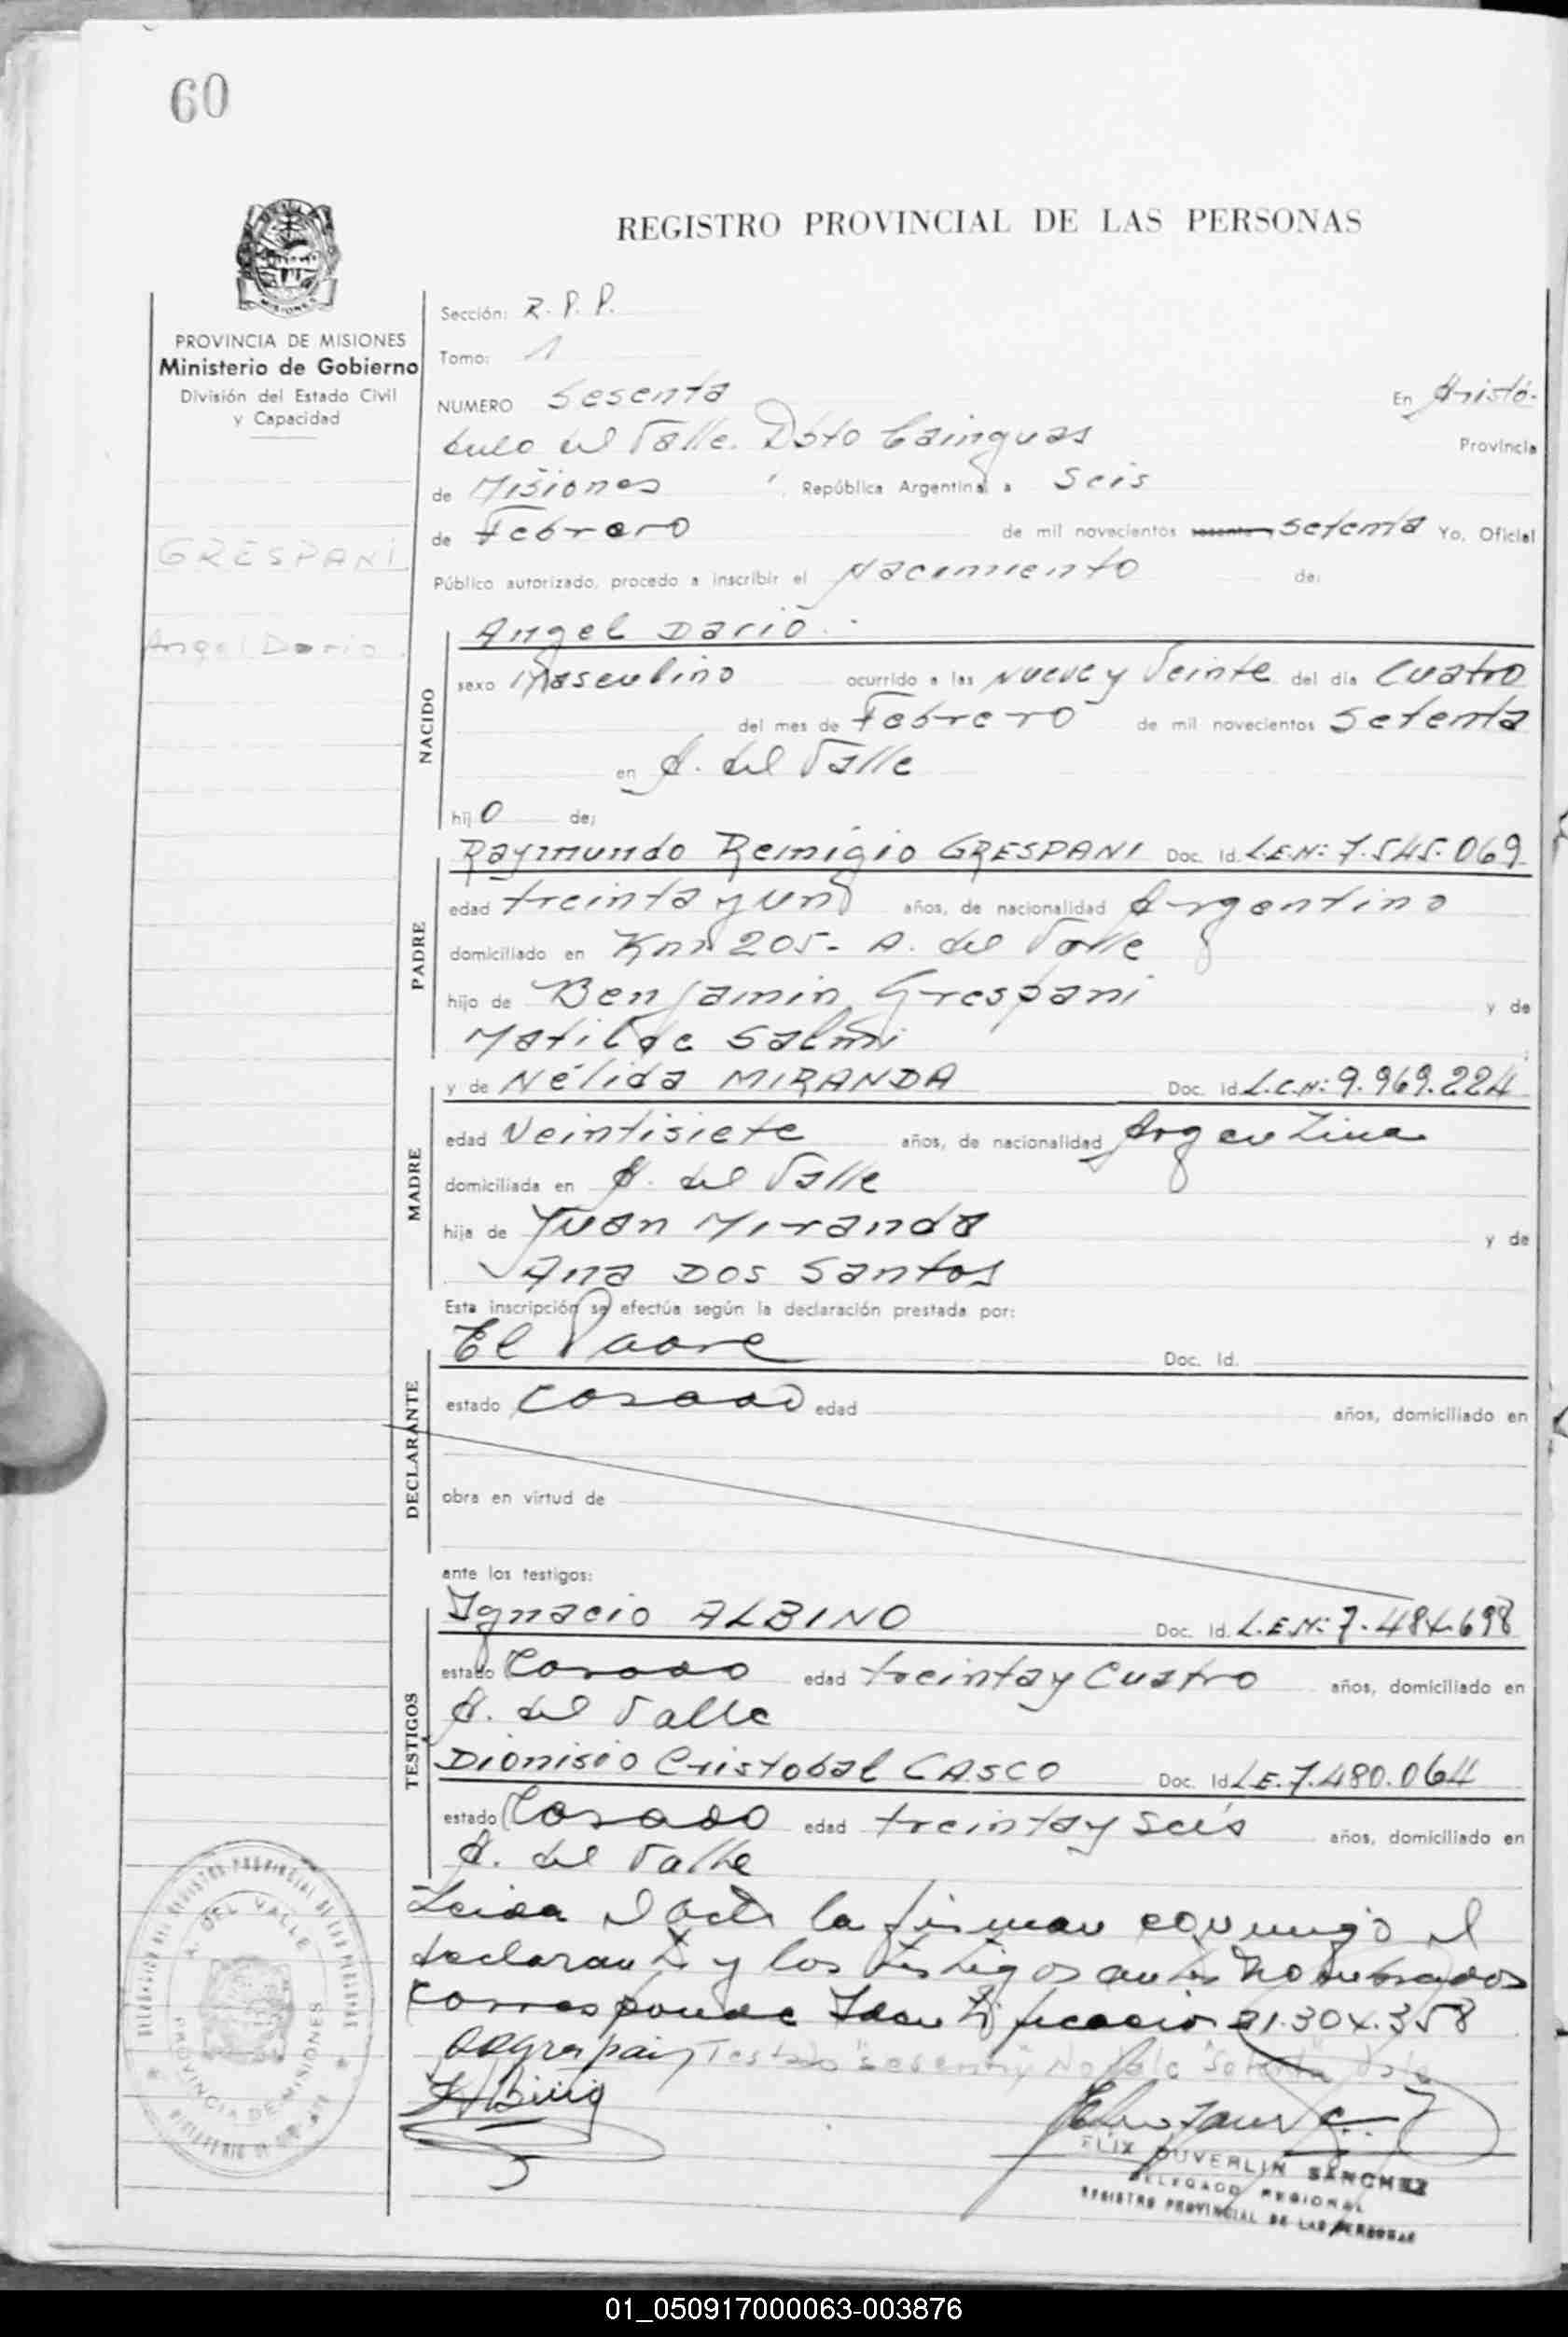 60
REGISTRO PROVINCIAL DE LAS PERSONAS
MISIONES
PROVINCIA DE MISIONES
Ministerio de Gobierno
División del Estado Civil
y Capacidad
GRESPANI
Angel Dario.
Sección: R. P. P.
Tomo: 1
NUMERO Sesenta En Aristó-
bulo del Valle. Dpto Cainguas Provincia
de Misiones, República Argentina a Seis
de Febrero de mil novecientos sesenta setenta Yo, Oficial
Público autorizado, procedo a inscribir el Nacimiento de:
NACIDO
Angel Dario.
sexo Masculino ocurrido a las Nueve y Veinte del día Cuatro
del mes de Febrero de mil novecientos Setenta
en A. del Valle
hijo de;
PADRE
Raymundo Remigio GRESPANI Doc. Id. L.E.N: 7.545.069
edad treinta y uno años, de nacionalidad Argentino
domiciliado en Km 205- A. del Valle
hijo de Benjamin Grespani y de
Matilde Salmi
MADRE
y de Nélida MIRANDA Doc. Id. L.C.N: 9.969.224
edad Veintisiete años, de nacionalidad Argentina
domiciliada en A. del Valle
hija de Juan Miranda y de
Ana Dos Santos
Esta inscripción se efectúa según la declaración prestada por:
DECLARANTE
El Padre Doc. Id.
estado Casado edad años, domiciliado en
obra en virtud de
ante los testigos:
TESTIGOS
Ignacio ALBINO Doc. Id. L.E.N: 7.484.698
estado Casado edad treinta y Cuatro años, domiciliado en
A. del Valle
Dionisio Cristobal CASCO Doc. Id L.E. 7.480.064
estado Casado edad treinta y Seis años, domiciliado en
A. del Valle
Leida el acta la firman conmigo el
declarante y los testigos antes nombrados
Corresponde Identificacion 21.304.358
Testado "sesenta" No Vale "Setenta" Vale
A. DEL VALLE
PROVINCIA DE MISIONES
FELIX DUVERLIN SANCHEZ
DELEGADO REGIONAL
REGISTRO PROVINCIAL DE LAS PERSONAS
01_050917000063-003876